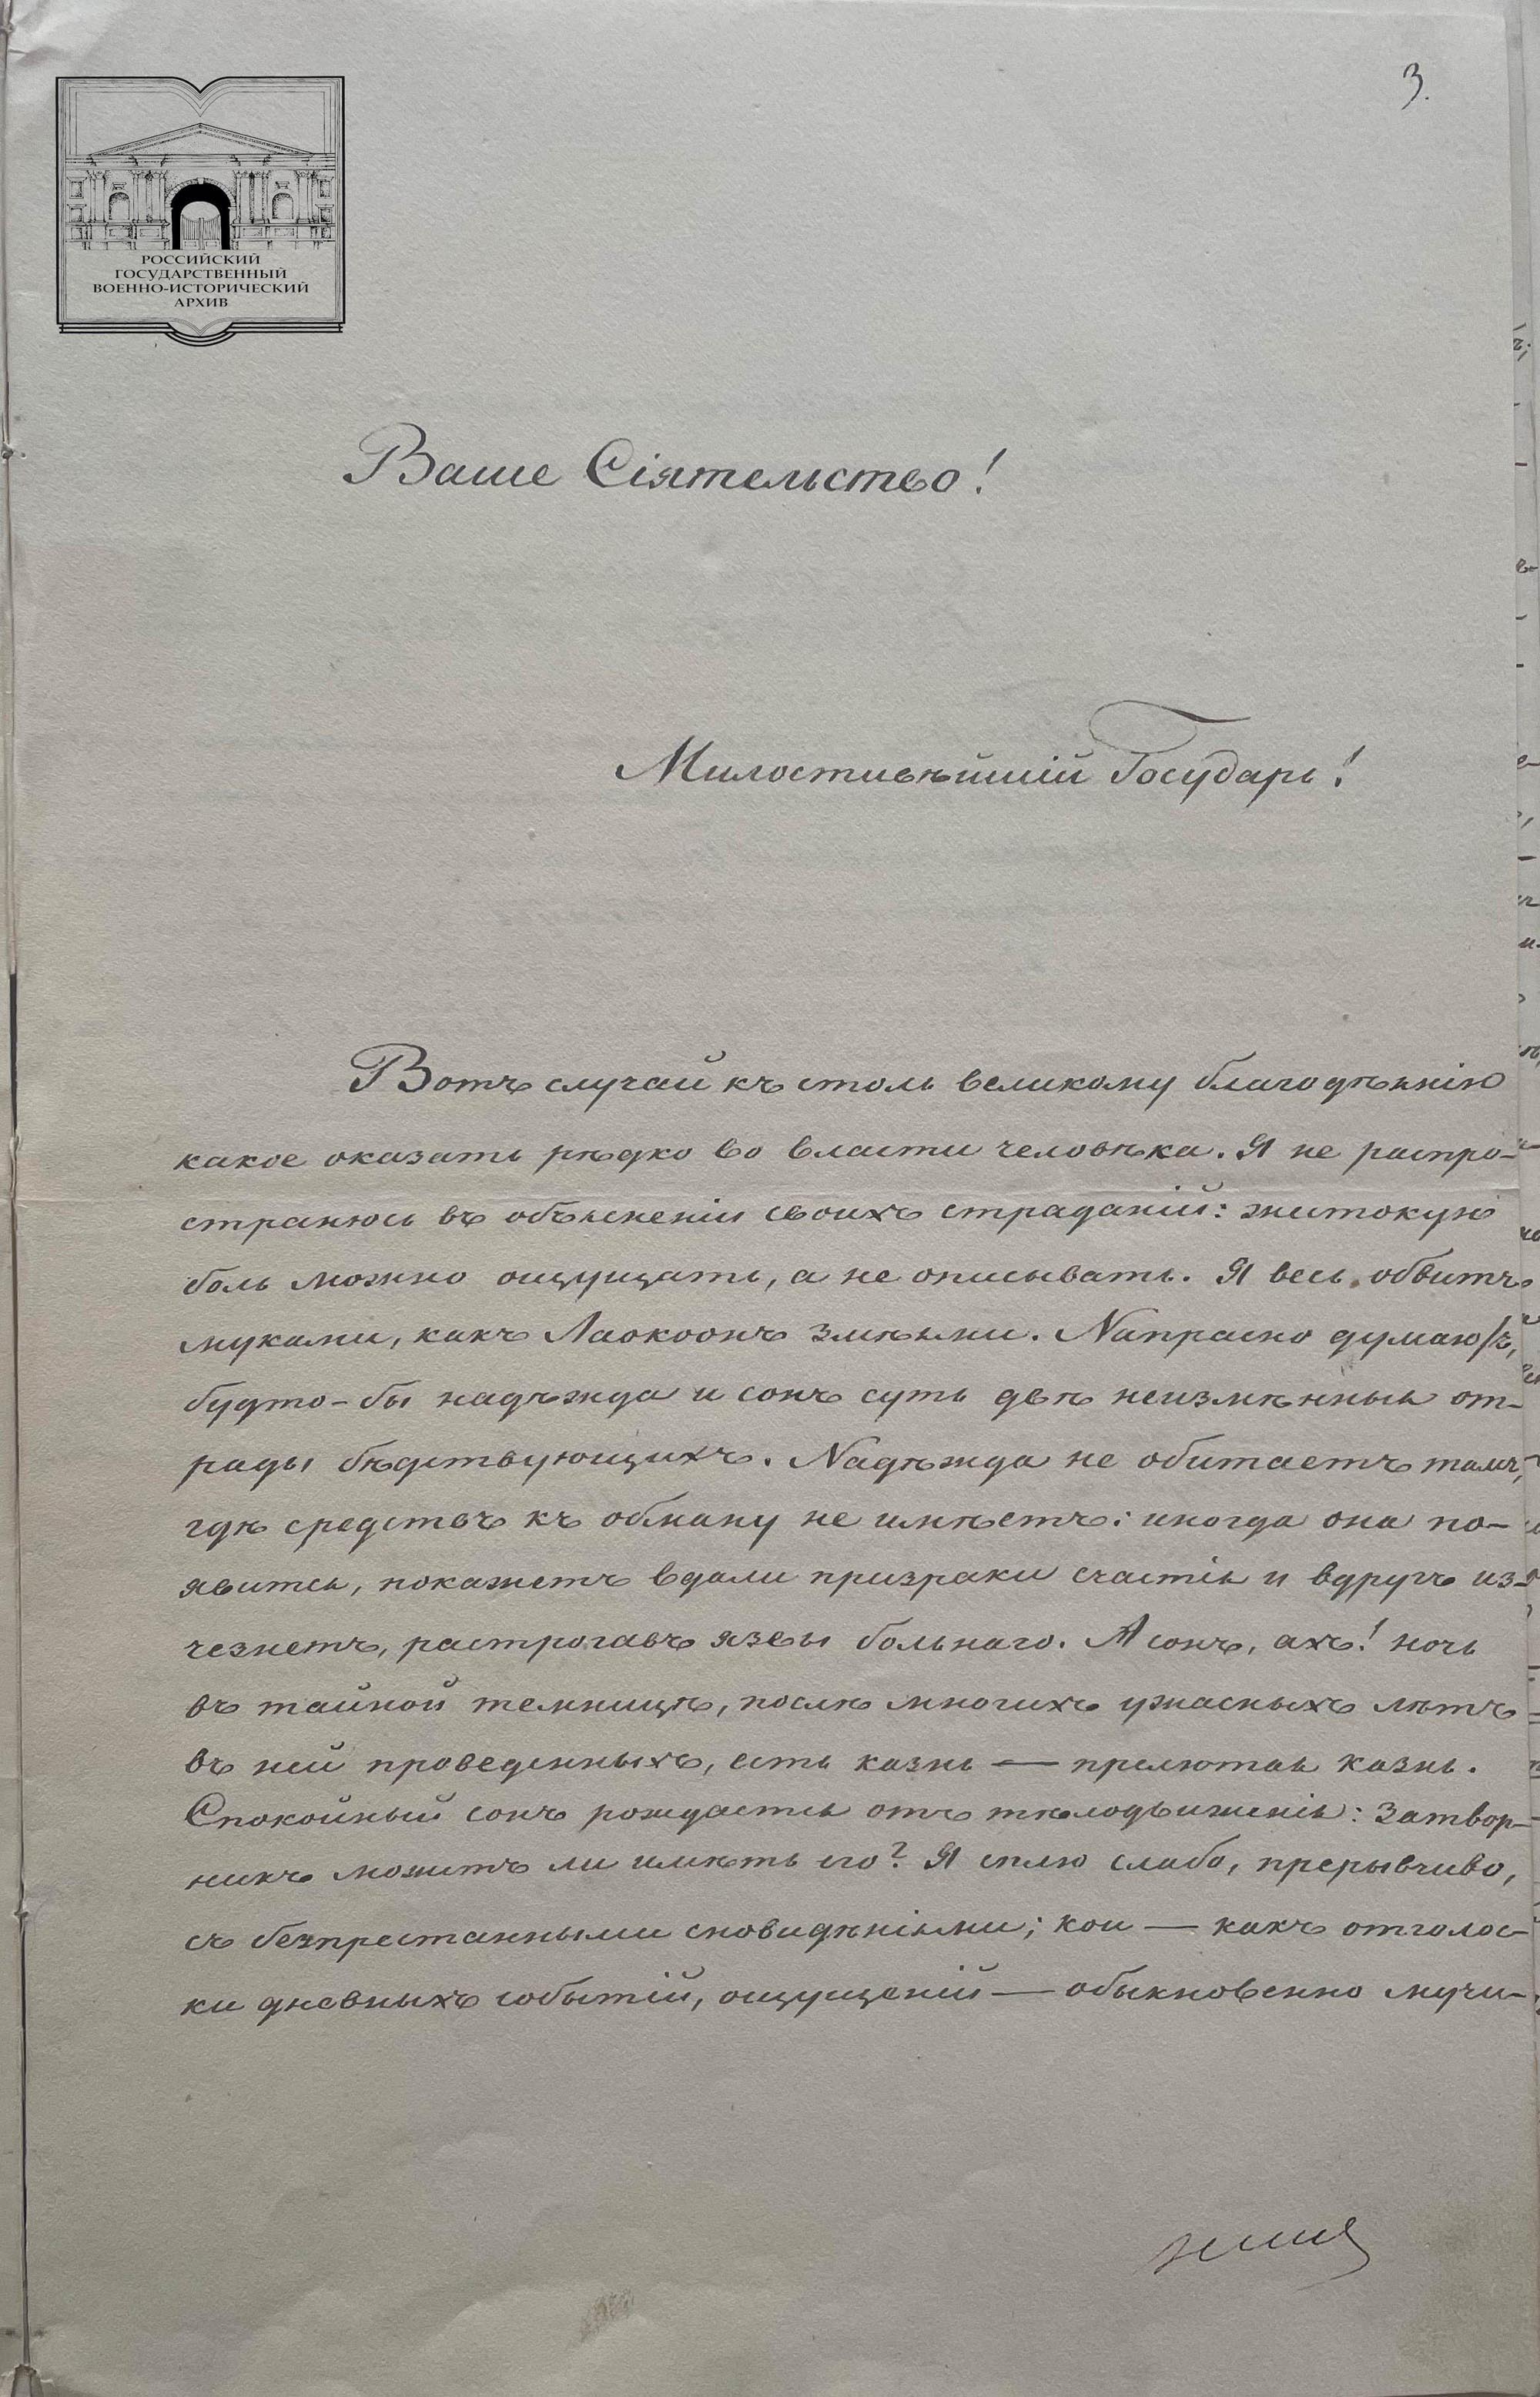 3.
РОССИЙСКИЙ
ГОСУДАРСТВЕННЫЙ
ВОЕННО-ИСТОРИЧЕСКИЙ
АРХИВ
Ваше Сіятельство!
Милостивѣйшій Государь!
Вотъ случай къ столь великому благодѣянію
какое оказать рѣдко во власти человѣка. Я не распро-
странюсь въ объясненіи своихъ страданій: жестокую
боль можно ощущать, а не описывать. Я весь обвитъ
муками, какъ Лаокоонъ змѣями. Напрасно думаютъ,
будто-бы надѣжда и сонъ суть двѣ неизмѣнныя от-
рады бѣдствующихъ. Надѣжда не обитаетъ тамъ,
гдѣ средствъ къ обману не имѣетъ: иногда она по-
явится, покажетъ вдали призраки счастія и вдругъ из-
чезнетъ, растрогавъ язвы больнаго. А сонъ, ахъ! ночь
въ тайной темницѣ, послѣ многихъ ужасныхъ лѣтъ
въ ней проведенныхъ, есть казнь — прелютая казнь.
Спокойный сонъ рождается отъ тѣлодвиженія: Затвор-
никъ можетъ ли имѣть его? Я сплю слабо, прерывчиво,
съ безпрестанными сновидѣніями; кои — какъ отголос-
ки дневныхъ событій, ощущеній — обыкновенно мучи-